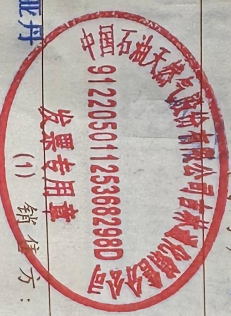 中国石油天然气股份有限公司吉林通化销售分公司
91220501125368298D
发票专用章
(1)
销售方:
亚丹